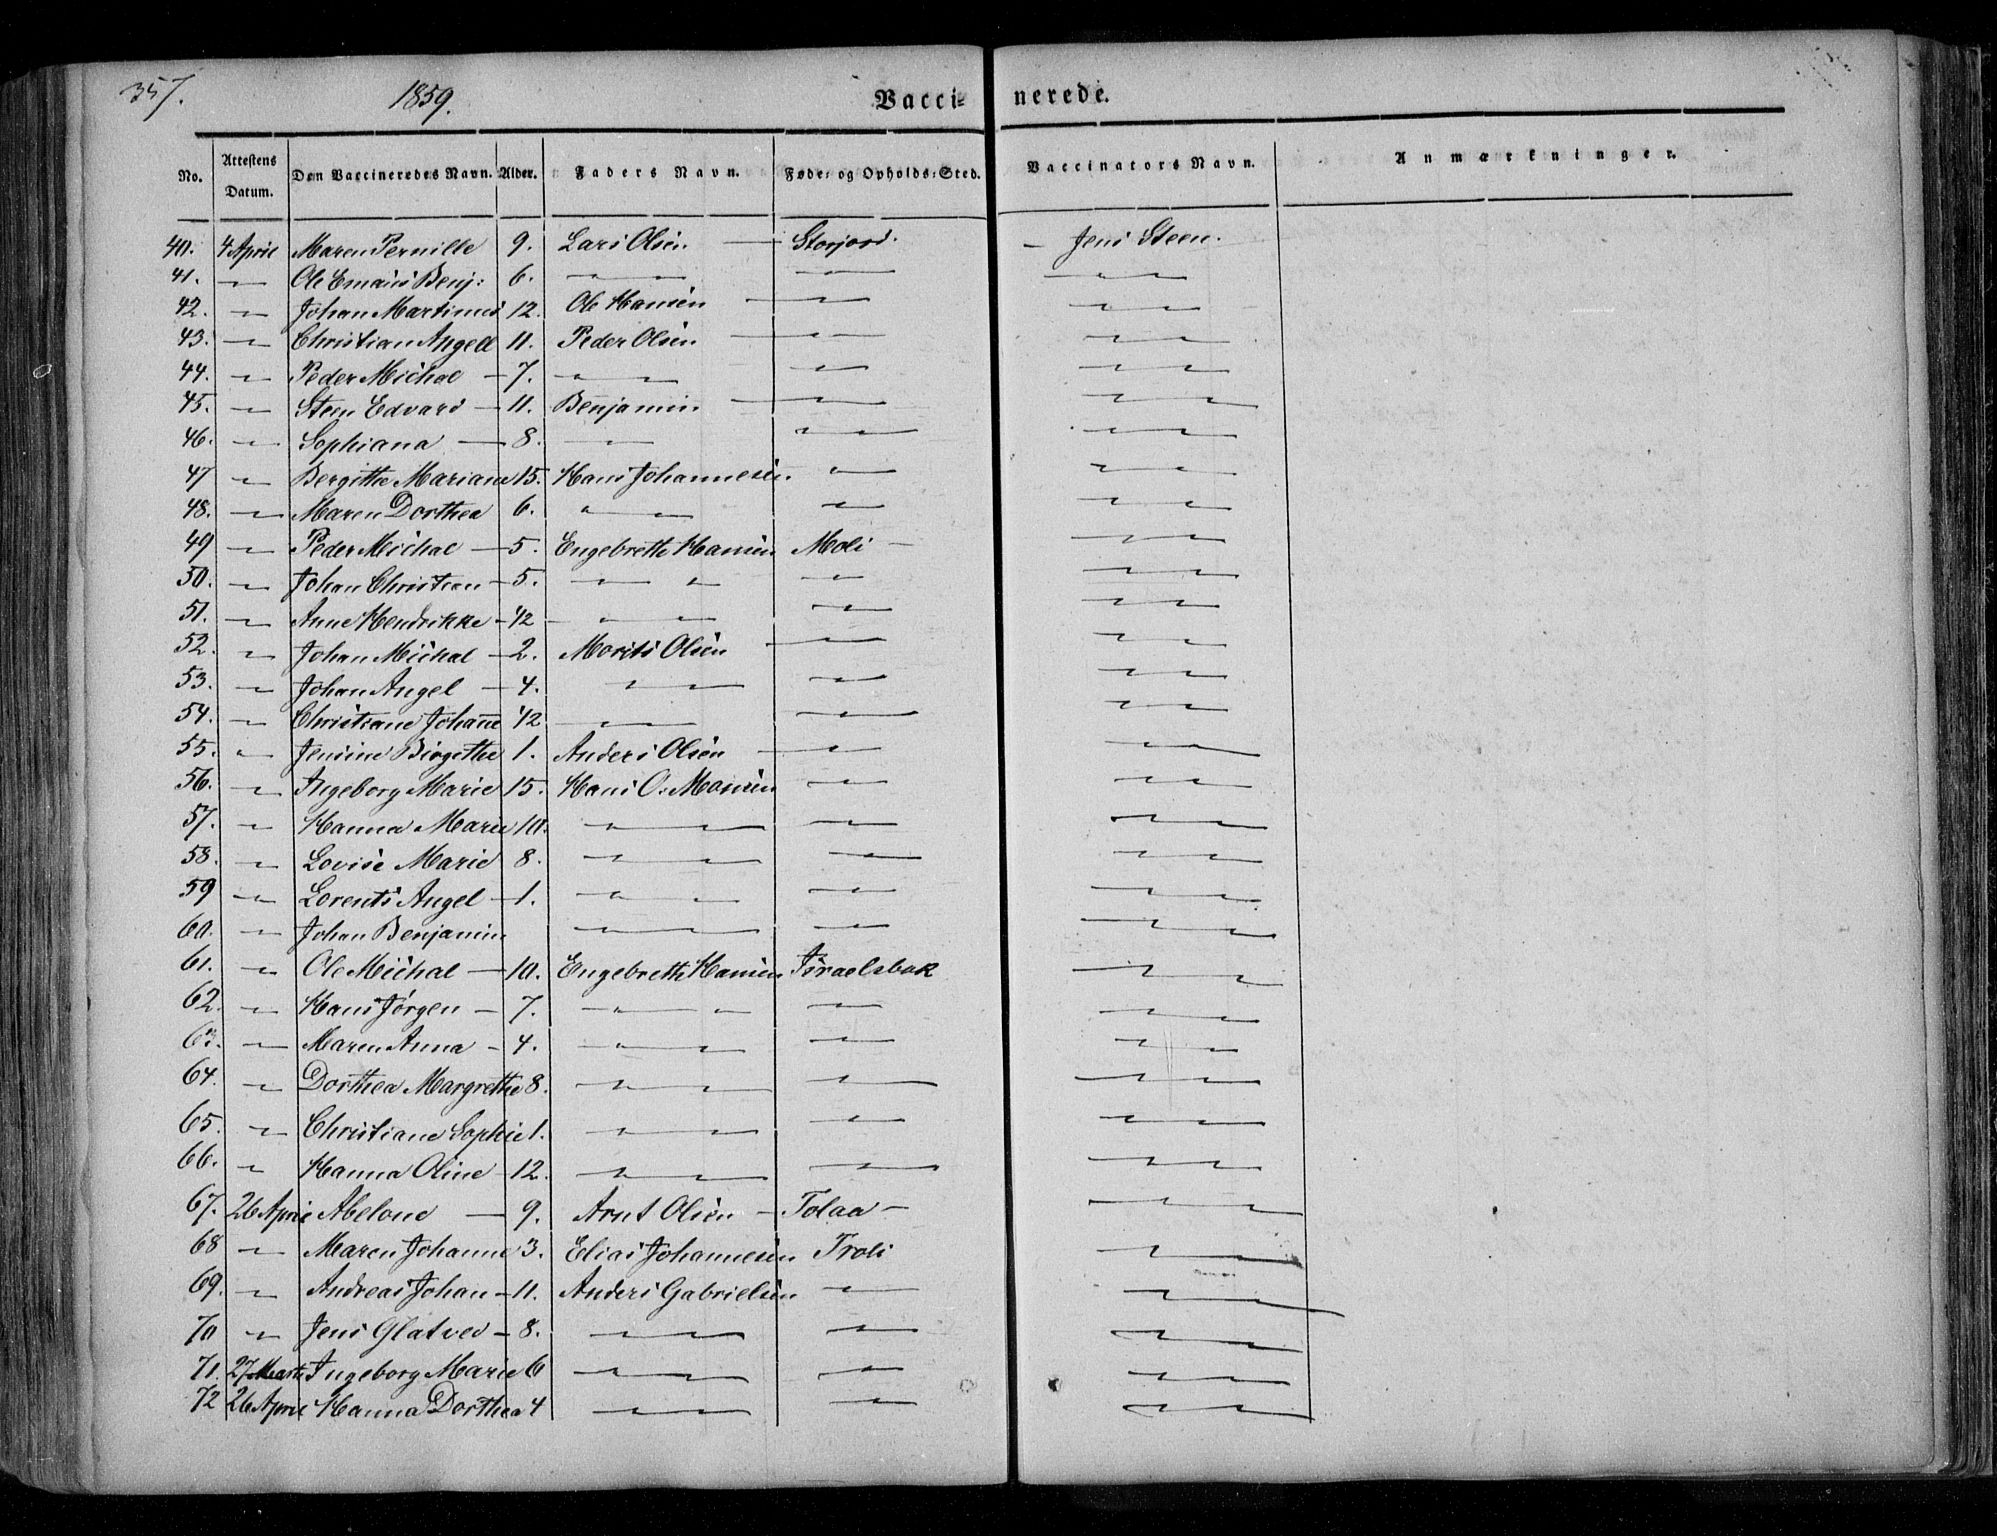 357.
1859.
Vacci- nerede.
No. Attestens Datum. Den Vaccineredes Navn. Alder. Faders Navn. Føde- og Opholds-Sted. Vaccinators Navn. Anmærkninger.
40. 4 April Maren Pernille 9. Lars Olsen — Storjord. — Jens Steen.
41. —"— Ole Emais Benj: 6. —"—"— —"— —"—"—
42. —"— Johan Martinus 12. Ole Hansen —"— —"—"—
43. —"— Christian Angell 11. Peder Olsen —"— —"—"—
44. —"— Peder Michal — 7. —"—"— —"— —"—"—
45. —"— Steen Edvard — 11. Benjamin —"— —"—"—
46. —"— Sophiana — 8. —"— —"—"— —"—"—
47 —"— Bergitthe Mariane 15. Hans Johannesen. —"— —"—"—
48. —"— Maren Dorthea 6. —"—"— —"— —"—"—
49 —"— Peder Michal — 5. Engebreth Hansen Moli — —"—"—
50. —"— Johan Christian — 5. —"—"— —"— —"—"—
51. —"— Anne Hendrikke — 1/2 —"—"— —"— —"—"—
52. —"— Johan Michal — 2. Morits Olsen —"— —"—"—
53. —"— Johan Angel — 4. —"—"— —"— —"—"—
54. —"— Christiane Johanne 1/2 —"—"— —"— —"—"—
55. " Jensine Birgithe 1. Anders Olsen —"— —"—"—
56. —"— Ingeborg Marie 15. Hans O. Monsen —"— —"—"—
57. —"— Hanna Maren 10. —"—"— —"— —"—"—
58. —"— Lovise Marie 8. —"—"— —"— —"—"—
59 —"— Lorents Angel — 1. —"—"— —"— —"—"—
60. —"— Johan Benjamin —"—"— —"— —"—"—
61. —"— Ole Michal — 10. Engebreth Hansen Israelsbak —"—"—
62. —"— Hans Jørgen — 7. —"—"— —"— —"—"—
63. —"— Maren Anna — 4. —"—"— —"— —"—"—
64. —"— Dorthea Margrethe 8. —"—"— —"— —"—"—
65. —"— Christiane Sophie 1. —"—"— —"— —"—"—
66. —"— Hanna Oline — 12. —"—"— —"— —"—"—
67. 26 April Abelone — 9. Arnt Olsen — Tolaa — —"—"—
68 —"— Maren Johanne 3. Elias Johannesen Troli —"—"—
69. —"— Andreas Johan — 11. Anders Gabrielsen —"— —"—"—
70 —"— Jens Glatved — 8. —"—"— —"— —"—"—
71. 27 Marts Ingeborg Marie 6 —"—"— —"— —"—"—
72 26 April Hanna Dorthea 4 —"—"— —"— —"—"—